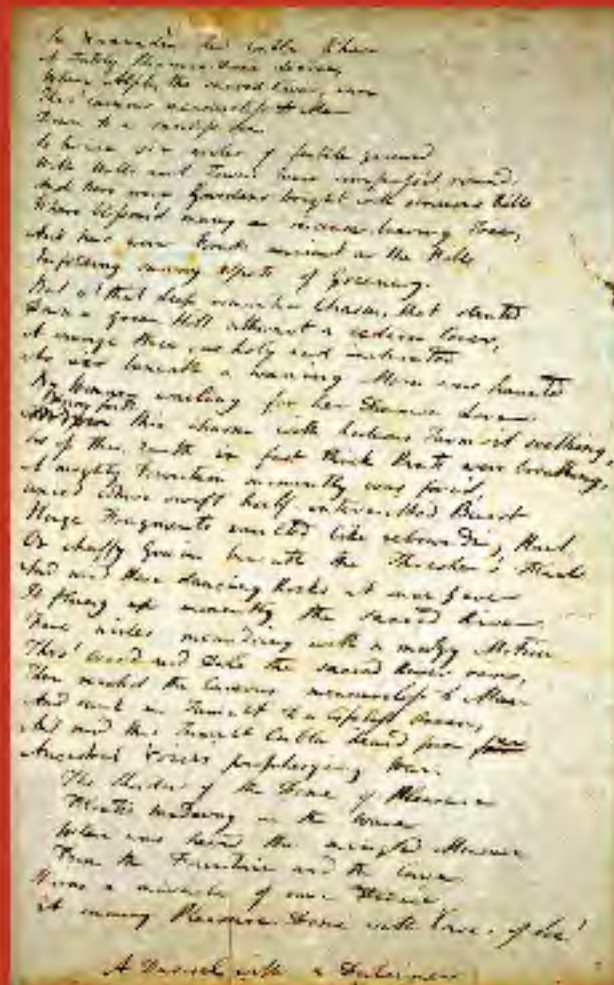 In Xannadu did Cubla Khan
A stately Pleasure-Dome decree,
Where Alph, the sacred River, ran
Thro' Caverns measureless to Man
Down to a sunless Sea.
So twice six miles of fertile ground
With Walls and Towers were compass'd round:
And here were Gardens bright with sinuous Rills
Where blossom'd many an incense-bearing Tree,
And here were Forests ancient as the Hills
Enfolding sunny Spots of Greenery.
But o! that deep romantic Chasm, that slanted
Down a green Hill athwart a cedarn Cover,
A savage Place, as holy and inchanted
As e'er beneath a waning Moon was haunted
By Woman wailing for her Dæmon Lover:
this Chasm with hideous Turmoil seething,
As if this Earth in fast thick Pants were breathing,
A mighty Fountain momently was forc'd,
Amid whose swift half-intermitted Burst
Huge Fragments vaulted like rebounding Hail,
Or chaffy Grain beneath the Thresher's Flail:
And mid these dancing Rocks at once & ever
It flung up momently the sacred River.
Five miles meandring with a mazy Motion
Thro' Wood and Dale the sacred River ran,
Then reach'd the Caverns measureless to Man
And sank in Tumult to a lifeless Ocean;
And mid this Tumult Cubla heard from far
Ancestral Voices prophesying War.
The Shadow of the Dome of Pleasure
Floated midway on the Wave
Where was heard the mingled Measure
From the Fountain and the Cave.
It was a miracle of rare Device,
A sunny Pleasure-Dome with Caves of Ice!
A Damsel with a Dulcimer